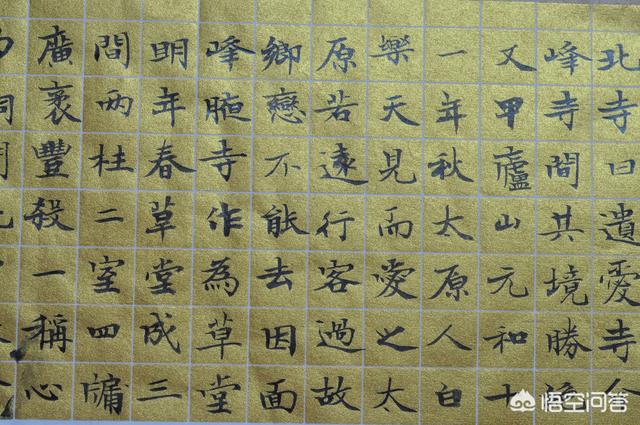 北寺曰遺愛寺介
峰寺間其境勝
又甲廬山元和十
一年秋太原人白
樂天見而愛之太
原若遠行客過故
鄉戀不能去因面
峰腋寺作為草堂
明年春草堂成三
間两柱二室四牖
廣袤豐殺一稱心
悟空问答